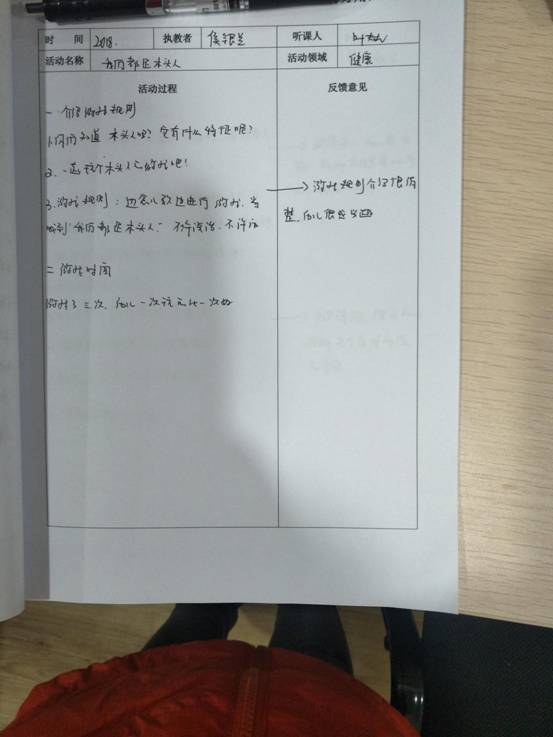 时 间 2018. 执教者 侯银兰 听课人
活动名称 我们都是木头人 活动领域 健康
活动过程 反馈意见
一、介绍游戏规则
1.你们知道木头人吗？它有什么特征呢？
2、一起玩个木头人的游戏吧！
3.游戏规则：边念儿歌边进行游戏，当
念到“我们都是木头人”不许说话，不许动
→游戏规则介绍很完
整，幼儿很感兴趣
二、游戏时间
游戏了三次，幼儿一次比一次好